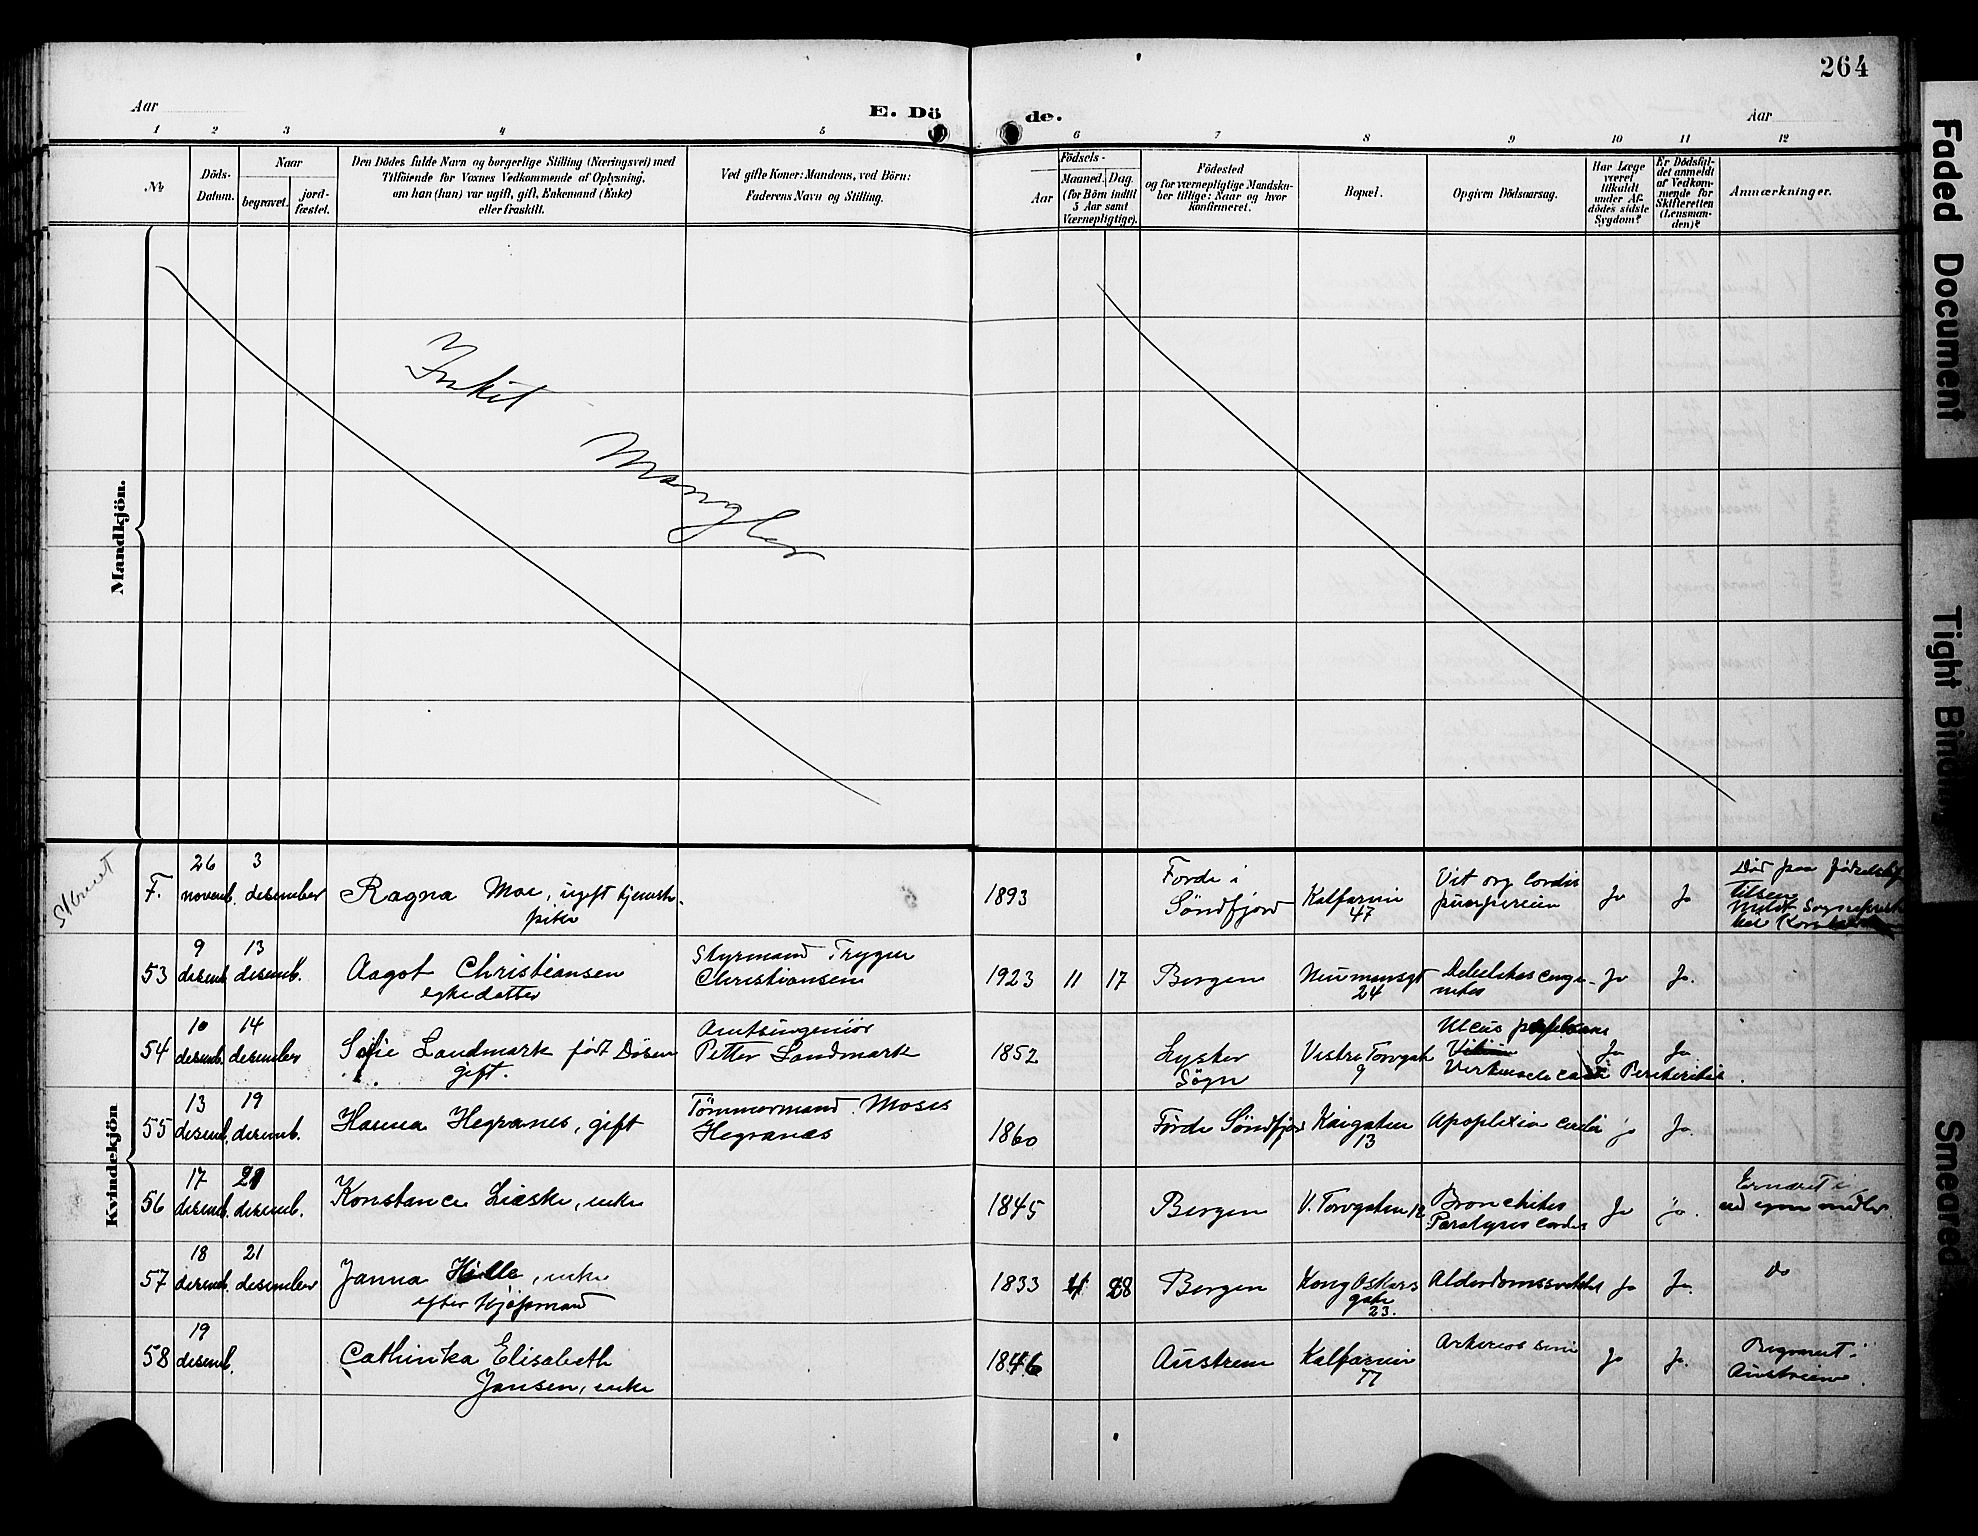 264
Aar
E. Dö
de.
Aar
1 2 3 4 5 6 7 8 9 10 11 12
№
Döds-
Datum.
Naar
begravet.
jord-
fæstet.
Den Dödes fulde Navn og borgerlige Stilling (Næringsvei) med
Tilföiende for Voxnes Vedkommende af Oplysning,
om han (hun) var ugift, gift, Enkemand (Enke)
eller fraskilt.
Ved gifte Koner: Mandens, ved Börn:
Faderens Navn og Stilling.
Födsels-
Aar
Maaned. Dag.
(for Börn indtil
5 Aar samt
Værnepligtige).
Födested
og for værnepligtige Mandska-
ber tillige: Naar og hvor
Konfirmeret.
Bopæl.
Opgiven Dödsaarsag.
Har Læge
været
tilkaldt
under Af-
dödes sidste
Sygdom?
Er Dödsfal-
det anmeldt
af Vedkom-
mende for
Skifteretten
(Lensman-
den)?
Anmærkninger.
Mandkjön.
Intet
Mangler
Kvindekjön
F. 26 novemb. 3 desember Ragna Moe, ugift tjeneste-
pike
1893 Førde i
Søndfjord Kalfarvei
47 Vit org cordis
puerperium Ja Ja Død paa
53 9 desemb. 13 desemb. Aagot Christiansen
egte datter
Styrmand Trygve
Christiansen
1923 11 17 Bergen Neumansgt
24 Ja Ja.
54 10 desemb. 14 desember Sofie Landmark født Døsen
gift.
Amtsingeniør
Petter Landmark
1852 Lyster
Sogn Vestre Torvgate
9 Ulcus
Ja Ja
55 13 desemb. 19 desemb. Hanna Hegranes, gift
Tømmermand Moses
Hegranæs
1860 Førde Søndfjor Kaigaten
13 Apoplexia cerebri ja Ja.
56 17 desemb. 21 desemb. Konstance Lieske, enke
1845 Bergen V. Torvgaten 12 Bronchites
Paralysis cordis Ja ja. Ernæret
ved egne midler.
57 18 desemb. 21 desember Janna Hille, enke
efter kjøpmand
1833 4 28 Bergen Kong Oskars
gate
23. Alderdomssvakhet Ja Ja. Do
58 19 desemb. Cathinka Elisabeth
Jansen, enke
1846 Austreim Kalfarvei
77 Arterios Ja Ja. Begravet i
Austreim.
Faded Document
Tight Bindin
Smeared